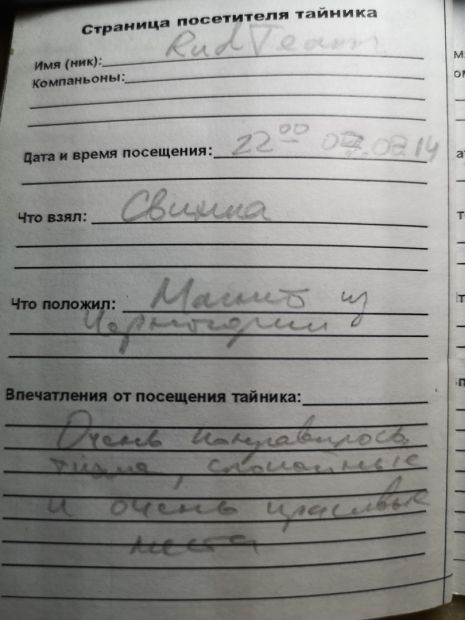 Страница посетителя тайника
Имя (ник): RudTeam
Компаньоны:
Дата и время посещения: 22⁰⁰ 07.02.14
Что взял: Свинка
Что положил: Магнит из
Черногории
Впечатления от посещения тайника:
Очень понравилось,
тихие, спокойные
и очень красивые
места